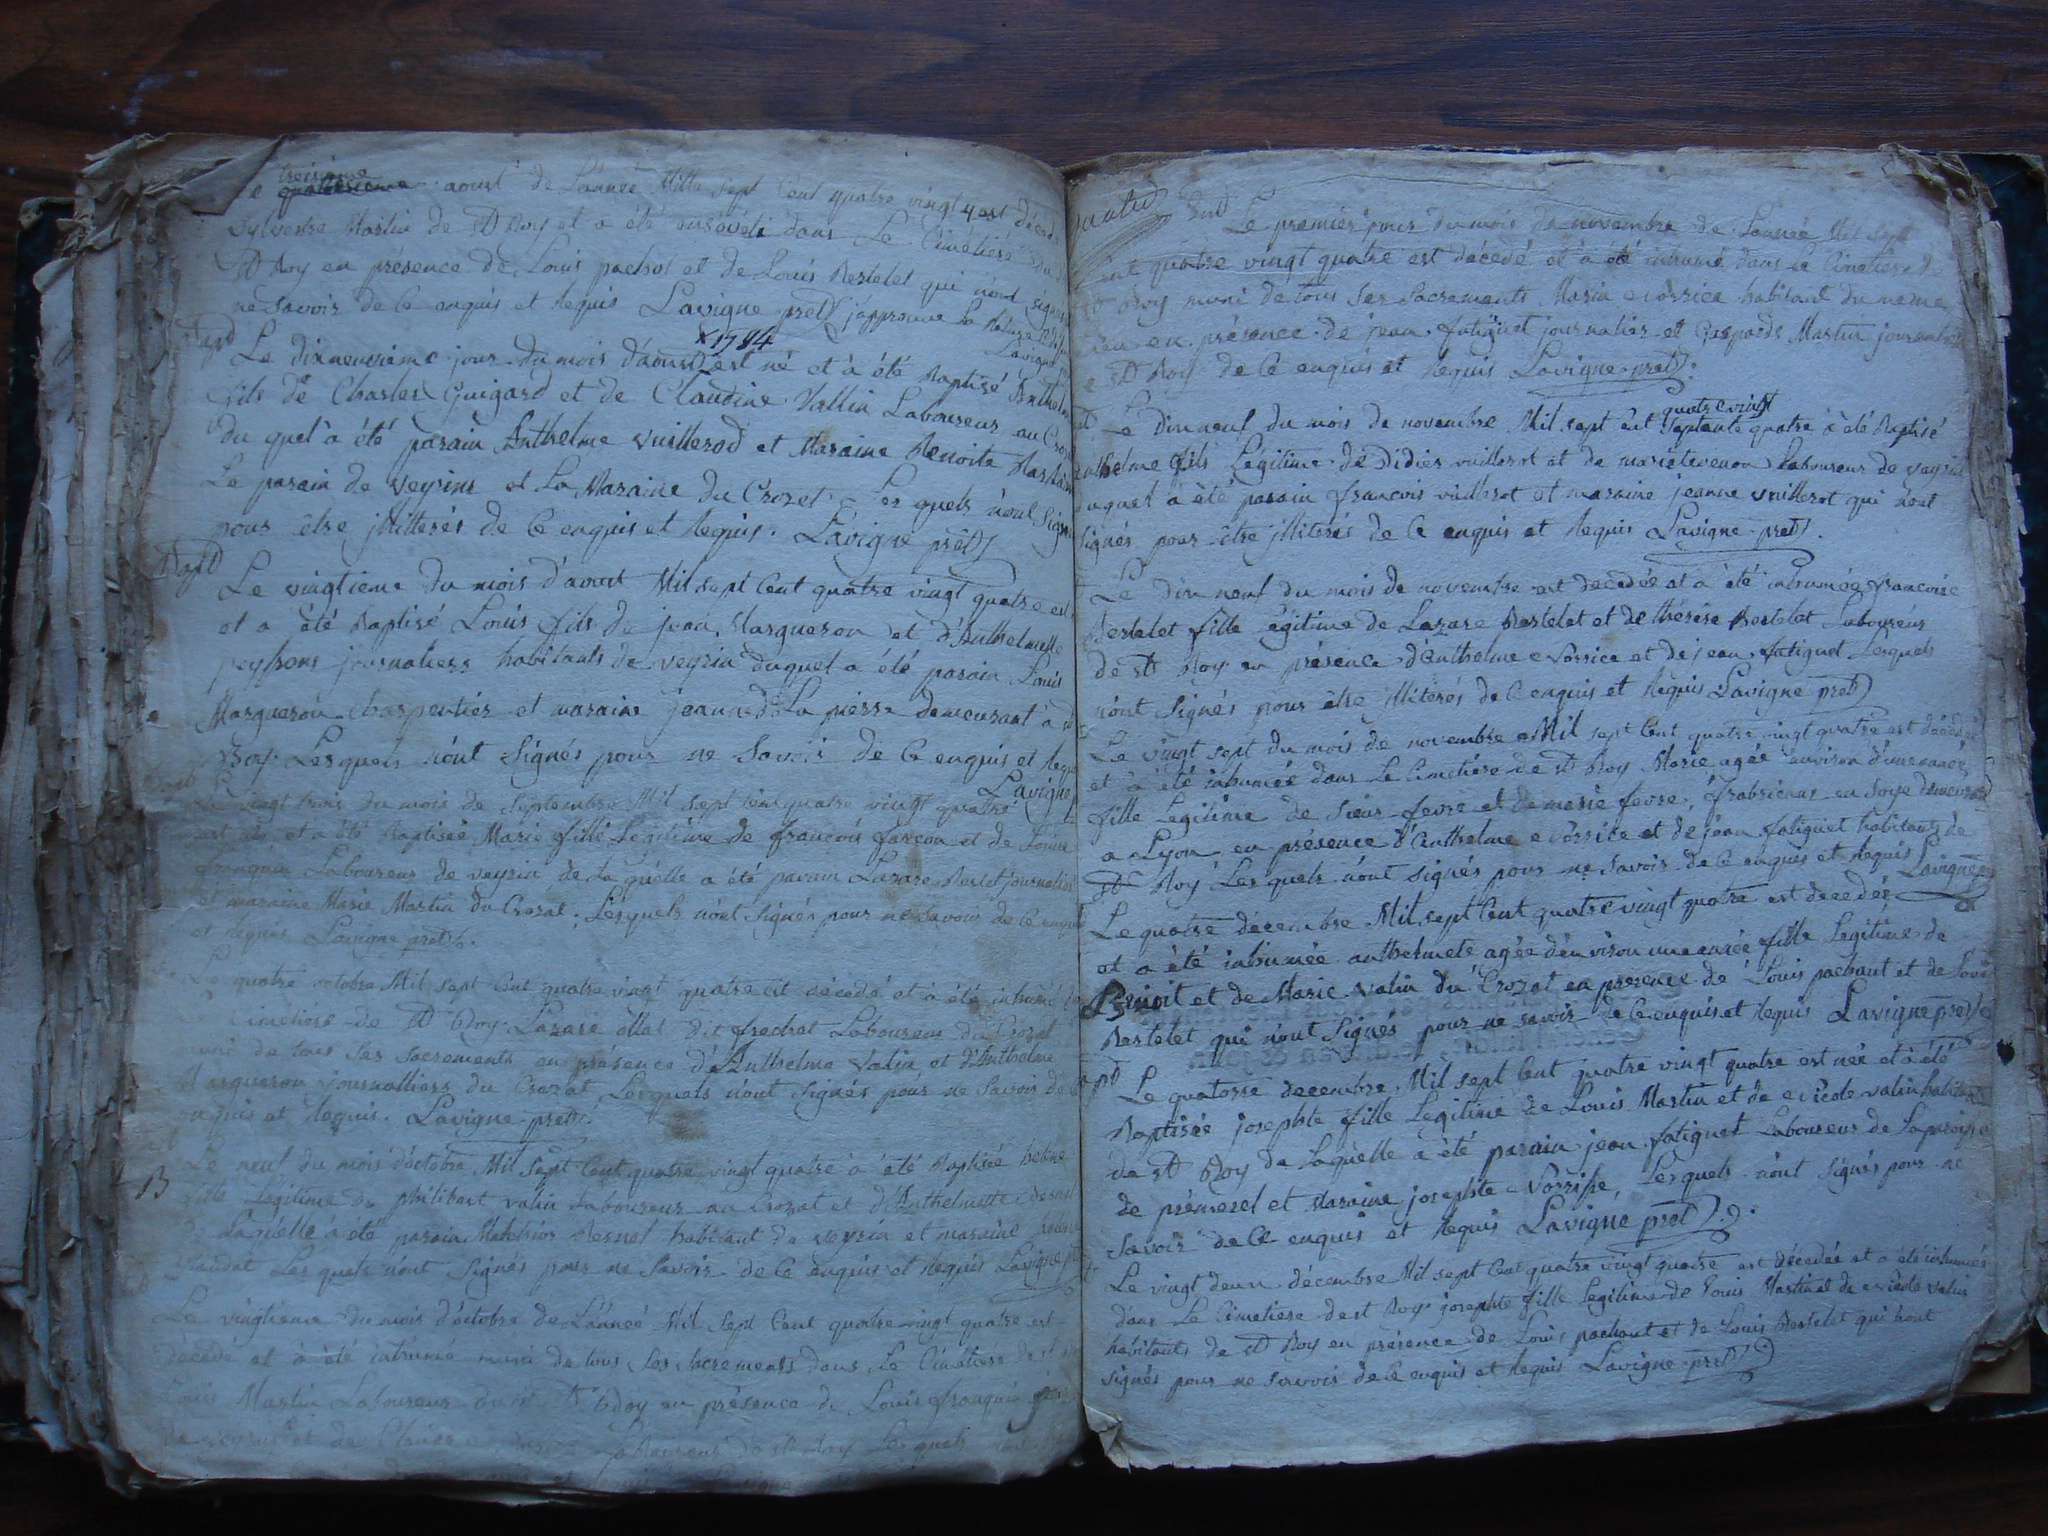 troisieme
quatorsieme aoust de L'année Mille sept Cent quatre vingt 4 est décédé
Sylvestre Martin de St Roy et a été enséveli dans Le Cimétière
St Roy en présence de Louis pachot et de Louis Berlelet qui n'ont signés
ne savoir de Ce enquis et Requis Lavigne pret j'approuve La
Lavigne
Bapt
x 1784
Le dixneuvieme jour du mois d'aoust est né et à été Baptisé Anthelme
fils de Charles Guigard et de Claudine Vallin Laboureur au Crozet
du quel à été parain Anthelme vuillerod et Maraine Benoite
Le parain de Veyrins et La Maraine du Crozet. Les quels n'ont Signé
pour être jllitterés de Ce enquis et Requis. Lavigne prêt
Bapt
Le vingtieme du mois d'aoust Mil sept Cent quatre vingt quatre est
et a été Baptisé Louis fils de jean Margueron et d'Anthelmette
peyssons journaliers habitants de veyrin duquel a été parain Louis
Margueron Charpentier et maraine jeanne de La pierre demeurant à
Roy. Lesquels n'ont Signés pour ne Savoir de Ce enquis et Requis
Lavigne
Le vingt trois du mois de Septembre Mil sept Cent quatre vingt quatre
est née et a été Baptisée Marie fille Legitime de françois farçon et de Louise
franquin Laboureur de veyrin de La quelle a été parain Lazare Berlet journalier
et maraine Marie Martin du Crozat. Lesquels n'ont signés pour ne savoir de Ce enquis
et Requis Lavigne pret.
Le quatre octobre Mil sept Cent quatre vingt quatre est décédé et à été inhumé
Le Cimetiere de St Roy Lazare ollat dit frechet Laboureur du Crozat
muni de tous ses sacrements en présence d'Anthelme Valin et d'Anthelme
Margueron journalliers du Crozat Lesquels n'ont signés pour ne Savoir de Ce
enquis et Requis. Lavigne pret
B
Le neuf du mois d'octobre Mil Sept Cent quatre vingt quatre a été Baptisée
fille Légitime de philibert valin Laboureur au Crozat et d'Anthelmette
de Laquelle à été parain Melchior Besnet habitant de veyrin et maraine
Les quels n'ont Signés pour ne Savoir de Ce enquis et Requis Lavigne
Le vingtieme du mois d'octobre de L'année Mil Sept Cent quatre vingt quatre est
décédé et à été inhumé muni de tous Ses Sacrements dans Le Cimétière de St
Louis Martin Laboureur St Roy en présence de Louis franquin
Laboureur de St Roy Les quels
Ent
Le premier jour du mois de novembre de L'année Mil Sept
Cent quatre vingt quatre est décédé et à été inhumé dans Le Cimetière de
St Roy muni de tous Ses Sacrements Marin vorsice habitant du meme
en présence de jean fatiguet journalier et Gaspards Martin journalier
de St Roy de Ce enquis et Requis Lavigne pret.
quatre vingt
Le dix neuf du mois de novembre Mil sept Cent Septante quatre à été Baptisé
Anthelme fils Legitime de Didier vuillerot et de marie tevenon Laboureur de veyrin
duquel à été parain francois vuillerot et maraine jeanne vuillerot qui n'ont
signés pour être jlliterés de Ce enquis et Requis Lavigne pret.
Le dix neuf du mois de novembre est decedée et a été inhumée francoise
Berlelet fille Légitime de Lazare Berlelet et de thérèse Berlelet Laboureur
de St Roy en présence d'Anthelme vorsice et de jean fatiguet Lesquels
n'ont Signés pour être illiterés de Ce enquis et Requis Lavigne pret
Le vingt sept du mois de novembre Mil sept Cent quatre vingt quatre est décédée
et à été inhumée dans Le Cimetiere de St Roy Marie agée environ d'une année
fille Legitime de Sieur fevre et de marie fevre, frabricant en Soye demeurant
a Lyon en présence d'Anthelme vorsice et de jean fatiguet habitants de
St Roy Lesquels n'ont signés pour ne Savoir de Ce enquis et Requis Lavigne
Le quatre décembre Mil sept Cent quatre vingt quatre est decedée
et a été inhumée anthelmete agée d'environ une année fille Legitime de
Benoit et de Marie valin du Crozat en presence de Louis pachaut et de Louis
Berlelet qui n'ont Signés pour ne savoir de Ce enquis et Requis Lavigne pret
Bapt
Le quatorse decembre Mil sept Cent quatre vingt quatre est née et à été
Baptisée josephte fille Legitime de Louis Martin et de nicole valin habitants
de St Roy de Laquelle à été parain jean fatiguet Laboureur de La paroisse
de prémesel et Maraine josephte Vorsise, Lesquels n'ont Signés pour ne
Savoir de Ce enquis et Requis Lavigne pret.
Le vingt deux décembre Mil sept Cent quatre vingt quatre est décédée et a été inhumée
dans Le Cimetiere de st Roy josephte fille legitime de Louis Martin et de nicole valin
habitants de St Roy en présence de Louis pachaut et de Louis Berlelet qui n'ont
signés pour ne scavoir de Ce enquis et Requis Lavigne pret